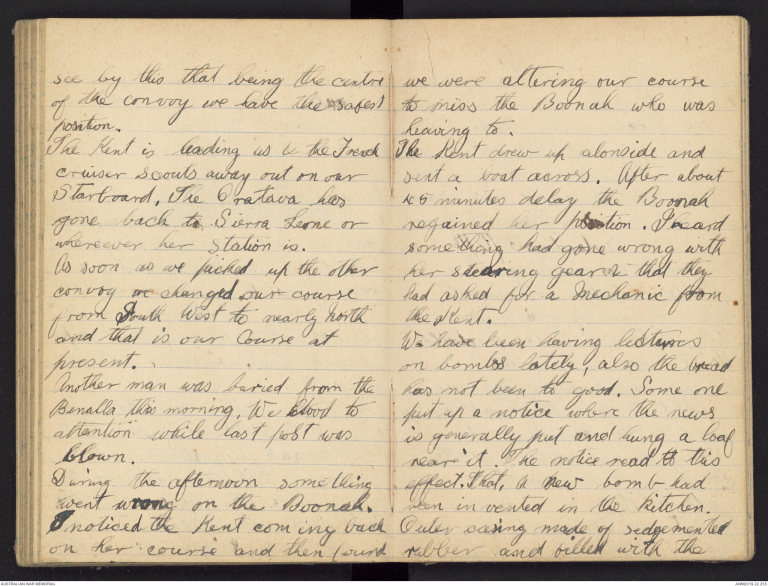 see by this that being the centre
of the convoy we have the safest
position.
The Kent is leading us & the French
cruiser scouts away out on our
Starboard. The Oratava has
gone back to Sierra Leone or
whereever her station is.
As soon as we picked up the other
convoy we changed our course
from South West to nearly north
and that is our Course at
present.
Another man was buried from the
Benalla this morning. We stood to
attention while last post was
blown.
During the afternoon something
went wrong on the Boonah.
I noticed the Kent coming back
on her course and then found
we were altering our course
to miss the Boonah who was
heaving to.
The Kent drew up alonside and
sent a boat across. After about
45 minutes delay the Boonah
regained her position. I heard
something had gone wrong with
her stearing gear & that they
had asked for a Mechanic from
the Kent.
We have been having lectures
on bombs lately, also the bread
has not been to good. Some one
put up a notice where the news
is generally put and hung a loaf
near it. The notice read to this
effect. That, a new bomb had
been invented in the kitchen.
Outer casing made of sedgemented
rubber and filled with the
AUSTRALIAN WAR MEMORIAL